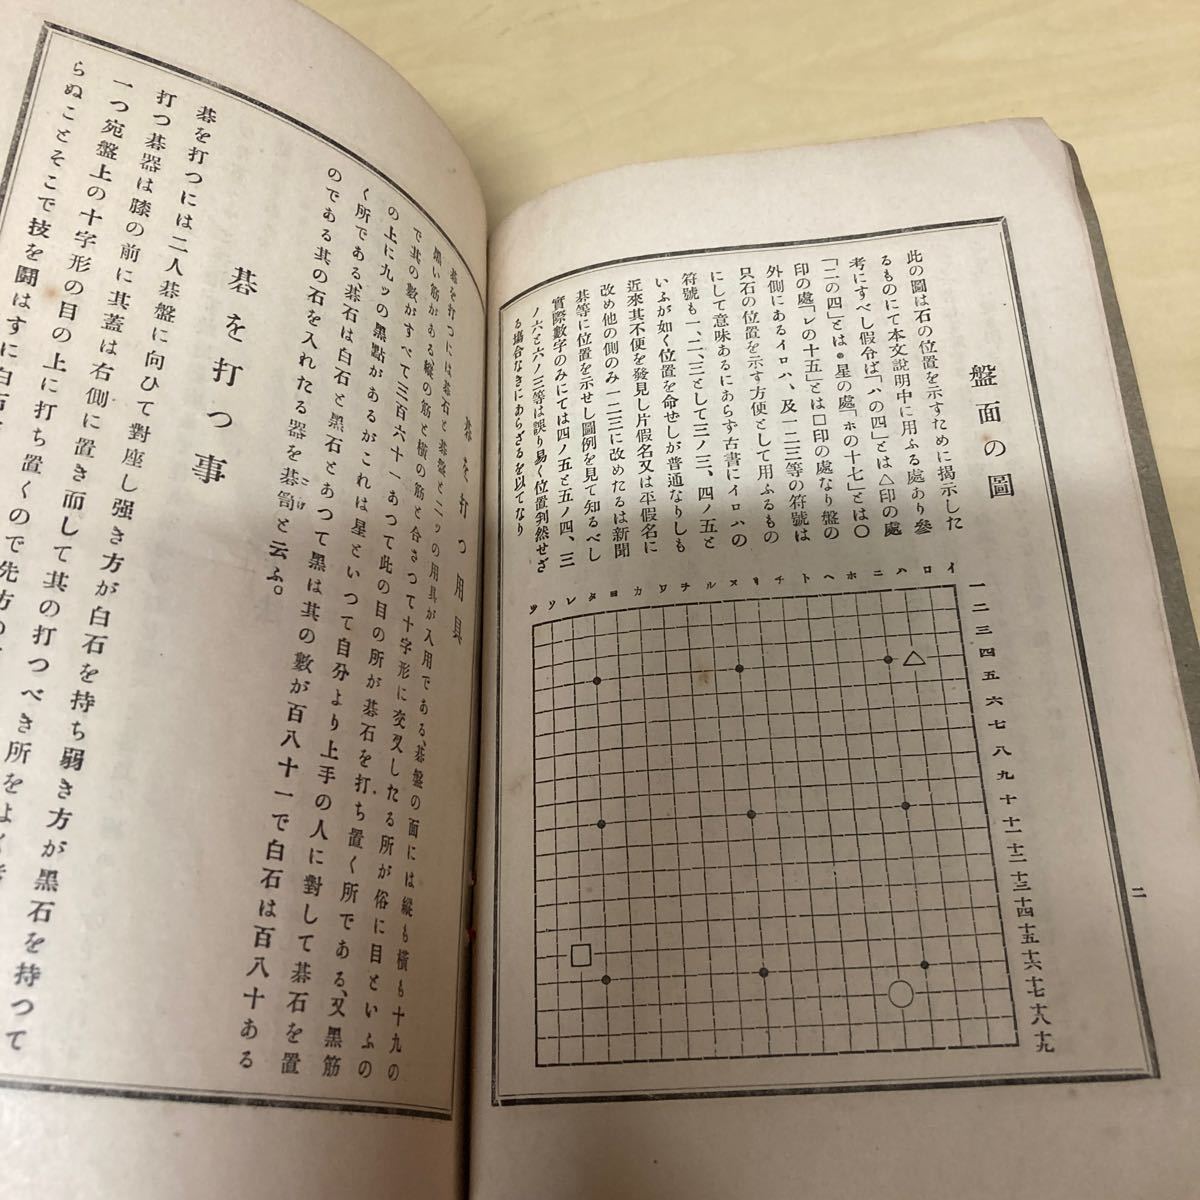 盤面の圖
此の圖は石の位置を示すために揭示した
るものにて本文説明中に用ふる處あり參
考にすべし假令ば「ハの四」とは△印の處
「ニの四」とは●星の處「ホの十七」とは〇
印の處「レの十五」とは□印の處なり盤の
外側にあるイロハ、及一二三等の符號は
只石の位置を示す方便として用ふるもの
にして意味あるにあらず古書にイロハの
符號も一、二、三として三ノ三、四ノ五と
いふが如く位置を命せしが普通なりしも
近來其不便を發見し片假名又は平假名に
改め他の側のみ一二三に改めたるは新聞
碁等に位置を示せし圖例を見て知るべし
實際數字のみにては四ノ五と五ノ四、三
ノ六と六ノ三等は誤り易く位置判然せざ
る場合なきにあらざるを以てなり
イロハニホヘトチリヌルヲワカヨタレソツ
一二三四五六七八九十十一十二十三十四十五十六十七十八十九
二
碁を打つ用具
碁を打つには碁石と碁盤と二ッの用具が入用である、碁盤の面には縱も橫も十九の
黑い筋がある縱の筋と橫の筋と合さつて十字形に交叉したる所が俗に目といふの
で其の數がすべて三百六十一あつて此の目の所が碁石を打ち置く所である、又黑筋
の上に九ッの黑點があるがこれは星といつて自分より上手の人に對して碁石を置
く所である、碁石は白石と黑石とあつて黑は其の數が百八十一で白石は百八十ある
のである其の石を入れたる器を碁笥と云ふ。
碁を打つ事
碁を打つには二人碁盤に向ひて對座し强き方が白石を持ち弱き方が黑石を持つて
打つ碁器は膝の前に其蓋は右側に置き而して其の打つべき所をよく
一つ宛盤上の十字形の目の上に打ち置くので先方の
らぬことそこで技を鬪はすに白石